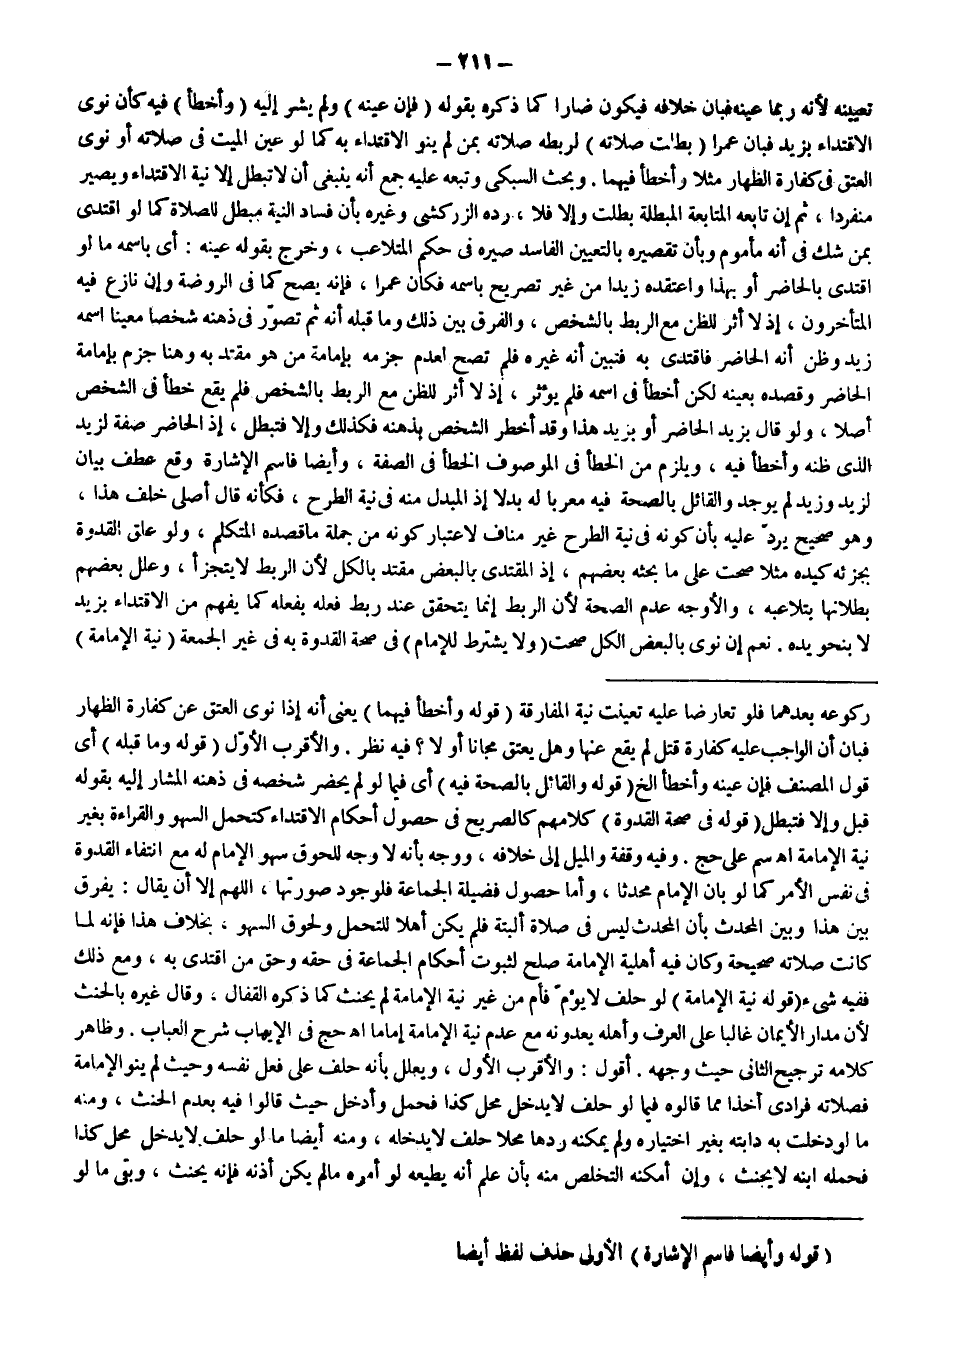 – ٢١١ –
تعيينه لأنه ربما عينه فبان خلافه فيكون ضارا كما ذكره بقوله ( فإن عينه ) ولم يشر إليه ( وأخطأ ) فيه كأن نوى
الاقتداء بزيد فبان عمرا ( بطلت صلاته ) لربطه صلاته بمن لم ينو الاقتداء به كما لو عين الميت فى صلاته أو نوى
العتق فى كفارة الظهار مثلا وأخطأ فيهما . وبحث السبكى وتبعه عليه جمع أنه ينبغى أن لا تبطل إلا نية الاقتداء ويصير
منفردا ، ثم إن تابعه المتابعة المبطلة بطلت وإلا فلا ، رده الزركشى وغيره بأن فساد النية مبطل للصلاة كما لو اقتدى
بمن شك فى أنه مأموم وبأن تقصيره بالتعيين الفاسد صيره فى حكم المتلاعب ، وخرج بقوله عينه : أى باسمه ما لو
اقتدى بالحاضر أو بهذا واعتقده زيدا من غير تصريح باسمه فكان عمرا ، فإنه يصح كما فى الروضة وإن نازع فيه
المتأخرون ، إذ لا أثر للظن مع الربط بالشخص ، والفرق بين ذلك وما قبله أنه ثم تصوّر فى ذهنه شخصا معينا اسمه
زيد وظن أنه الحاضر فاقتدى به فتبين أنه غيره فلم تصح لعدم جزمه بإمامة من هو مقتد به وهنا جزم بإمامة
الحاضر وقصده بعينه لكن أخطأ فى اسمه فلم يؤثر ، إذ لا أثر للظن مع الربط بالشخص فلم يقع خطأ فى الشخص
أصلا ، ولو قال بزيد الحاضر أو بزيد هذا وقد أخطر الشخص بذهنه فكذلك وإلا فتبطل ، إذ الحاضر صفة لزيد
الذى ظنه وأخطأ فيه ، ويلزم من الخطأ فى الموصوف الخطأ فى الصفة ، وأيضا فاسم الإشارة وقع عطف بيان
لزيد وزيد لم يوجد والقائل بالصحة فيه معربا له بدلا إذ المبدل منه فى نية الطرح ، فكأنه قال أصلى خلف هذا ،
وهو صحيح يردّ عليه بأن كونه فى نية الطرح غير مناف لاعتبار كونه من جملة ماقصده المتكلم ، ولو علق القدوة
بجزئه كيده مثلا صحت على ما بحثه بعضهم ، إذ المقتدى بالبعض مقتد بالكل لأن الربط لايتجزأ ، وعلل بعضهم
بطلانها بتلاعبه ، والأوجه عدم الصحة لأن الربط إنما يتحقق عند ربط فعله بفعله كما يفهم من الاقتداء بزيد
لا بنحو يده . نعم إن نوى بالبعض الكل صحت ( ولا يشترط للإمام ) فى صحة القدوة به فى غير الجمعة ( نية الإمامة )
ركوعه بعدهما فلو تعارضا عليه تعينت نية المفارقة ( قوله وأخطأ فيهما ) يعنى أنه إذا نوى العتق عن كفارة الظهار
فبان أن الواجب عليه كفارة قتل لم يقع عنها وهل يعتق مجانا أو لا ؟ فيه نظر . والأقرب الأوّل ( قوله وما قبله ) أى
قول المصنف فإن عينه وأخطأ الخ ( قوله والقائل بالصحة فيه ) أى فيما لو لم يحضر شخصه فى ذهنه المشار إليه بقوله
قبل وإلا فتبطل ( قوله فى صحة القدوة ) كلامهم كالصريح فى حصول أحكام الاقتداء كتحمل السهو والقراءة بغير
نية الإمامة اه سم على حج . وفيه وقفة والميل إلى خلافه ، ووجه بأنه لا وجه للحوق سهو الإمام له مع انتفاء القدوة
فى نفس الأمر كما لو بان الإمام محدثا ، وأما حصول فضيلة الجماعة فلوجود صورتها ، اللهم إلا أن يقال : يفرق
بين هذا وبين المحدث بأن المحدث ليس فى صلاة ألبتة فلم يكن أهلا للتحمل ولحوق السهو ، بخلاف هذا فإنه لما
كانت صلاته صحيحة وكان فيه أهلية الإمامة صلح لثبوت أحكام الجماعة فى حقه وحق من اقتدى به ، ومع ذلك
ففيه شىء ( قوله نية الإمامة ) لو حلف لايؤمّ فأم من غير نية الإمامة لم يحنث كما ذكره القفال ، وقال غيره بالحنث
لأن مدار الأيمان غالبا على العرف وأهله يعدونه مع عدم نية الإمامة إماما اه حج فى الإيهاب شرح العباب . وظاهر
كلامه ترجيح الثانى حيث وجهه . أقول : والأقرب الأول ، ويعلل بأنه حلف على فعل نفسه وحيث لم ينو الإمامة
فصلاته فرادى آخذا مما قالوه فيما لو حلف لايدخل محل كذا فحمل وأدخل حيث قالوا فيه بعدم الحنث ، ومنه
ما لو دخلت به دابته بغير اختياره ولم يمكنه ردها محلا حلف لايدخله ، ومنه أيضا ما لو حلف لايدخل محل كذا
فحمله ابنه لايحنث ، وإن أمكنه التخلص منه بأن علم أنه يطيعه لو أمره مالم يكن أذنه فإنه يحنث ، وبقى ما لو
( قوله وأيضا فاسم الإشارة ) الأولى حذف لفظ أيضا